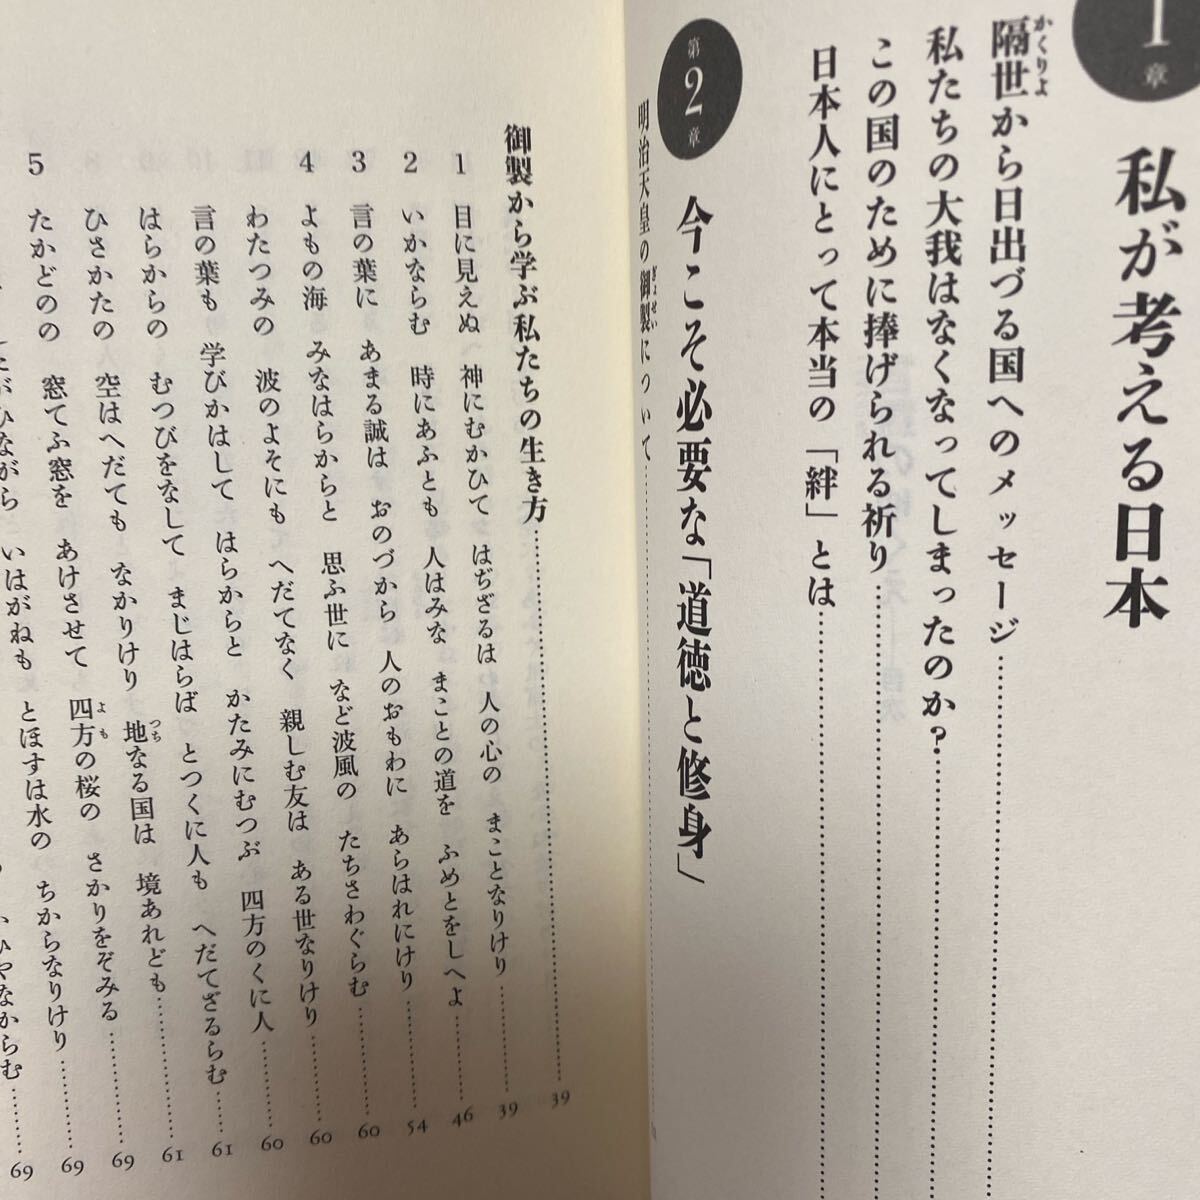 1章 私が考える日本
隔世から日出づる国へのメッセージ……………
私たちの大我はなくなってしまったのか？……………
この国のために捧げられる祈り……………
日本人にとって本当の「絆」とは……………
第2章 今こそ必要な「道徳と修身」
明治天皇の御製について……………
御製から学ぶ私たちの生き方……………39
1 目に見えぬ 神にむかひて はぢざるは 人の心の まことなりけり……39
2 いかならむ 時にあふとも 人はみな まことの道を ふめとをしへよ……46
3 言の葉に あまる誠は おのづから 人のおもわに あらはれにけり……54
4 よもの海 みなはらからと 思ふ世に など波風の たちさわぐらむ……60
わたつみの 波のよそにも へだてなく 親しむ友は ある世なりけり……60
言の葉も 学びかはして はらからと かたみにむつぶ 四方のくに人……60
はらからの むつびをなして まじはらば とつくに人も へだてざるらむ……61
ひさかたの 空はへだても なかりけり 地なる国は 境あれども……61
5 たかどのの 窓てふ窓を あけさせて 四方の桜の さかりをぞみる……69
いはがねも とほすは水の ちからなりけり……69
69